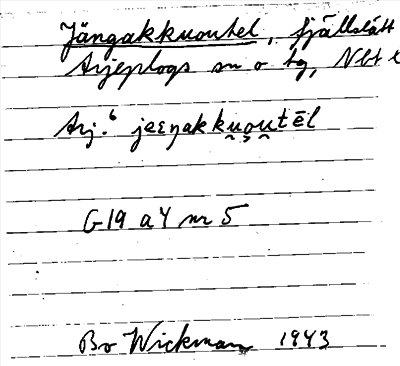 Jängakkuoutel, fjällslätt
Arjeplogs sn o tg, Nbt l
Arj.6 jeεŋakku̯o̯u̯tēl
G 19 a 4 nr 5
Bo Wickman 1943